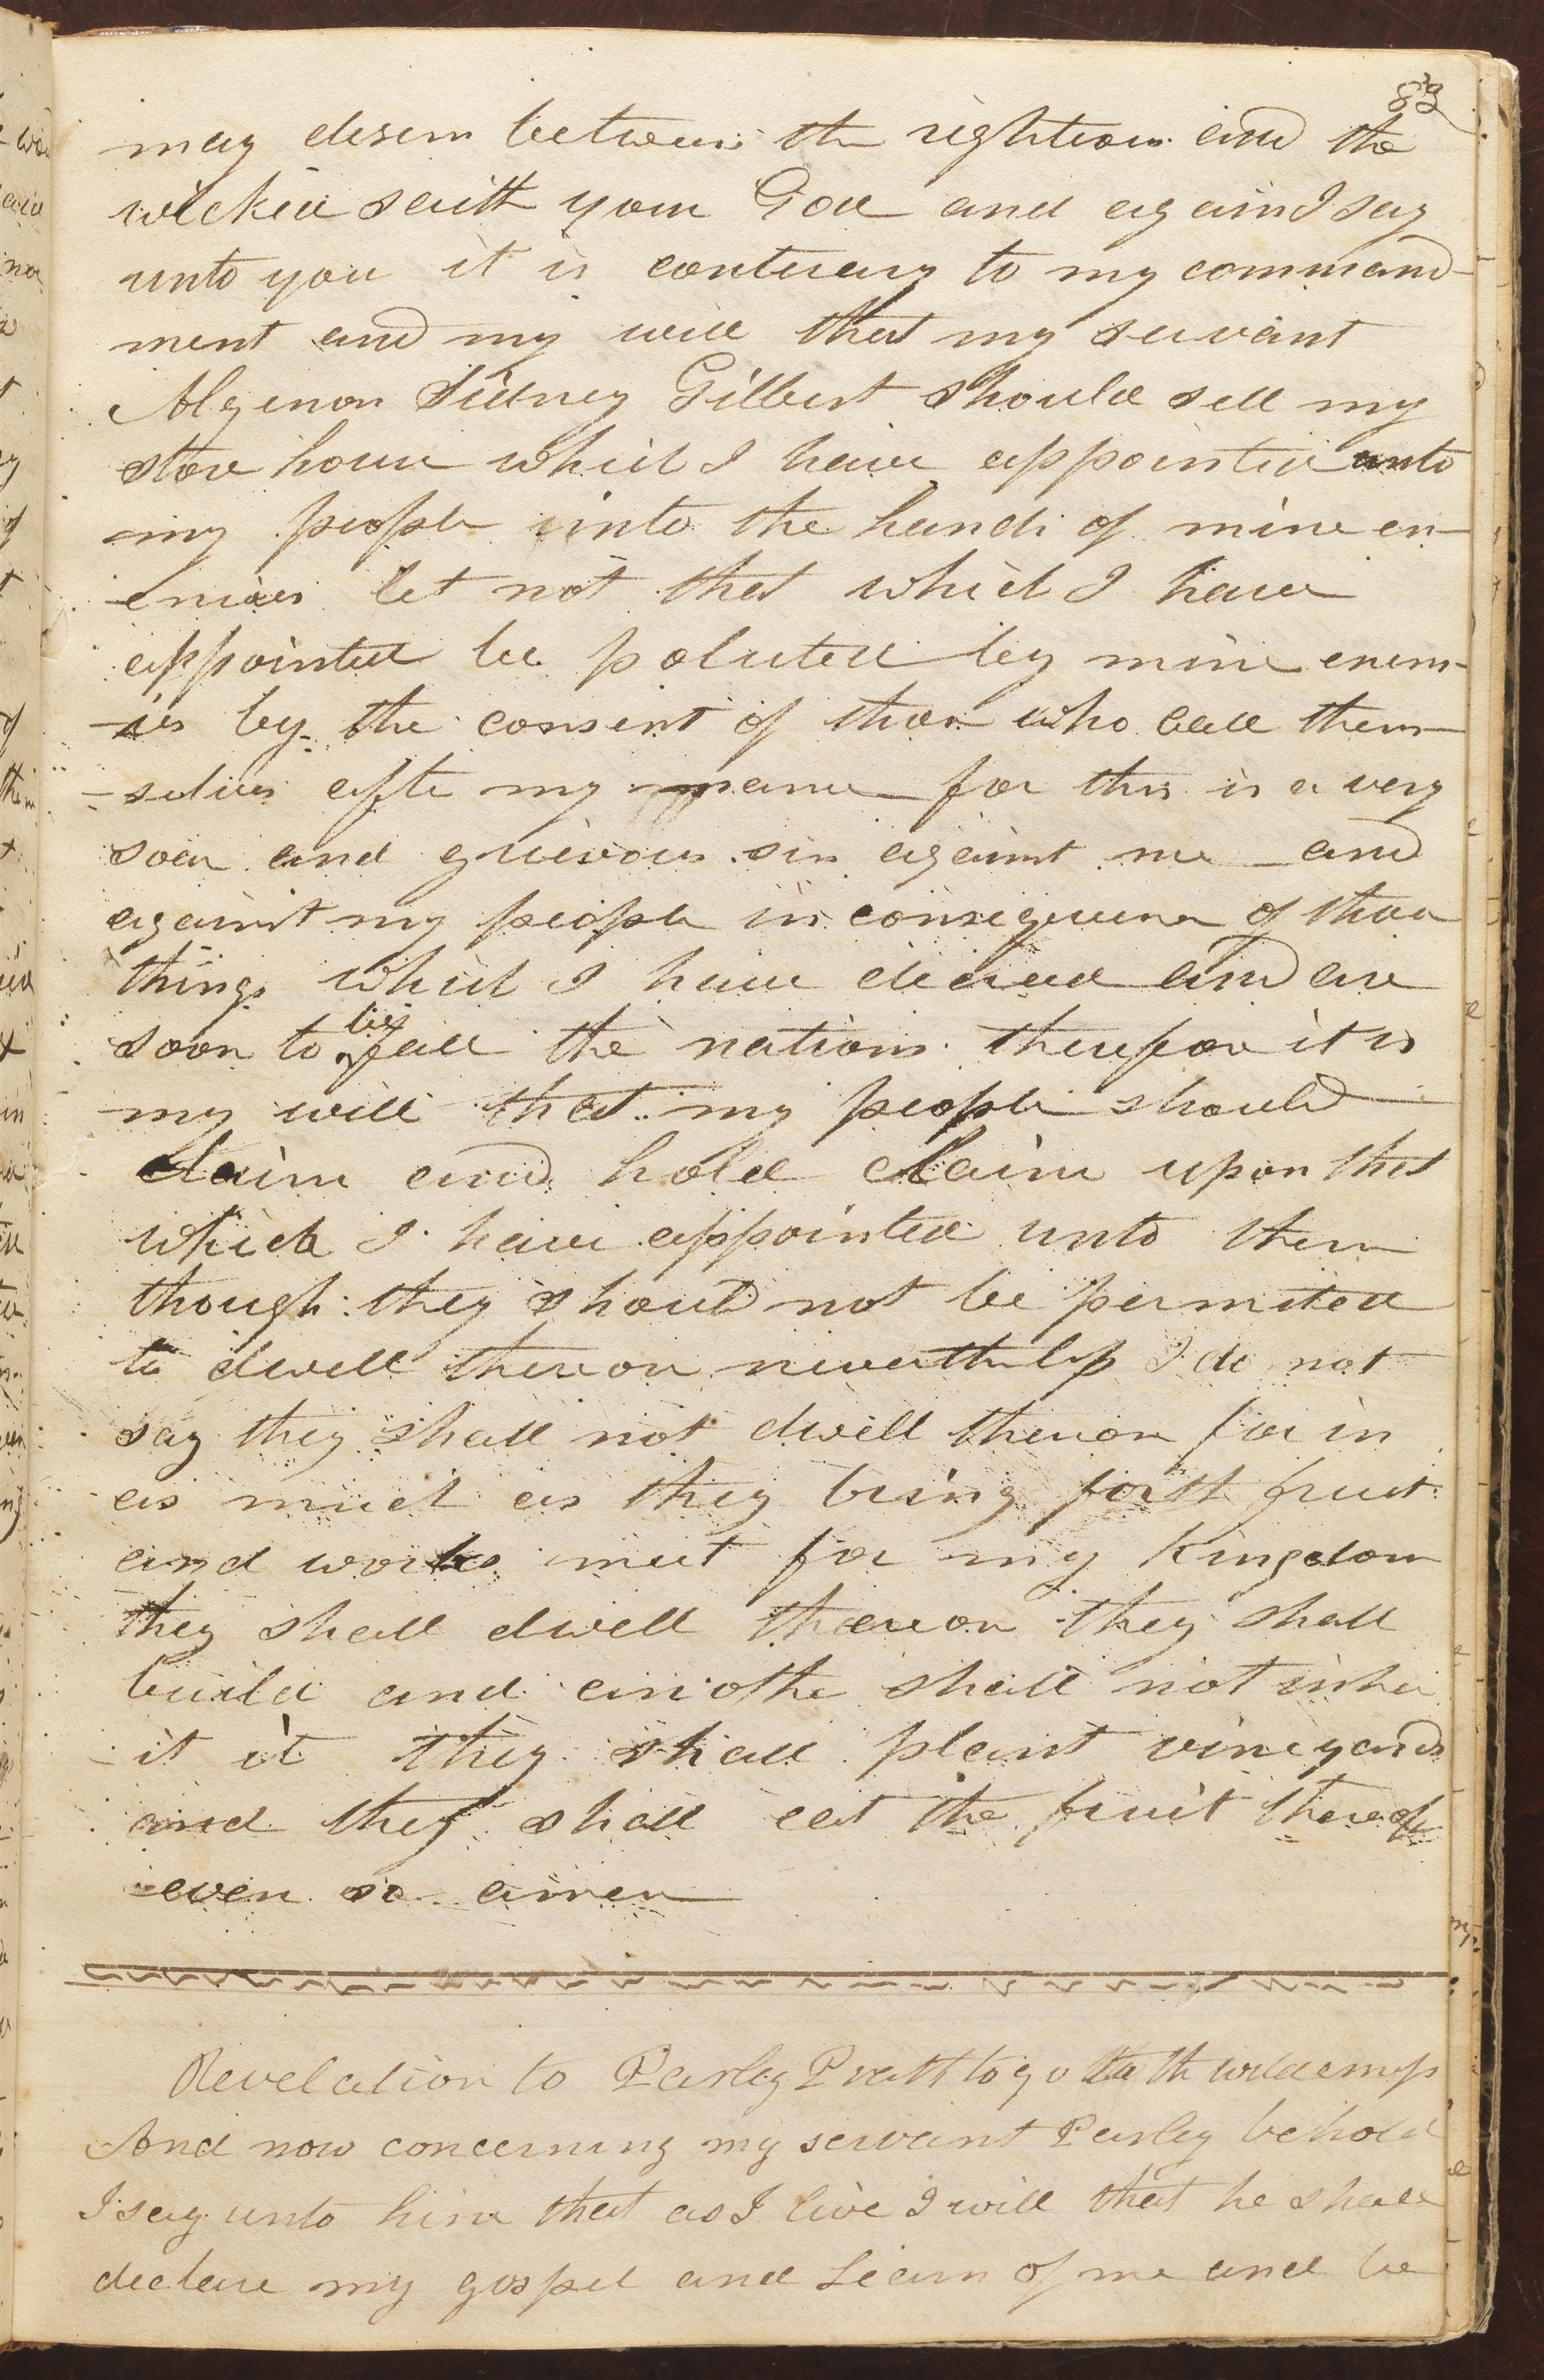 83
may desern between the rightious and the
wicked saith your God and again I say
unto you it is contrary to my command-
ment and my will that my servant
Algenon Sidney Gilbert should sell my
store house which I have appointed unto
my people into the hands of mine en-
-emies let not that which I have
appointed be poluted by mine enem-
-ies by the consent of those who call them-
-selves afte my name for this is a very
soar and grievous sin against me and
against my people in consequence of those
things which I have decreed and are
soon to befall the nations therefore it is
my will that my people should
claim and hold claim upon that
which I have appointed unto them
though they should not be permited
to dwell thereon nevertheless I do not
say they shall not dwell thereon for in
as much as they bring forth fruit
and works meet for my Kingdom
they shall dwell thereon they shall
build and anothe shall not inher
-it it they shall plant vineyards
and they shall eat the fruit thereof
even so amen
Revelation to Parley Pratt to go to the
And now concerning my servant Parley behold
I say unto him that as I live I will that he shall
declare my gospel and Learn of me and be